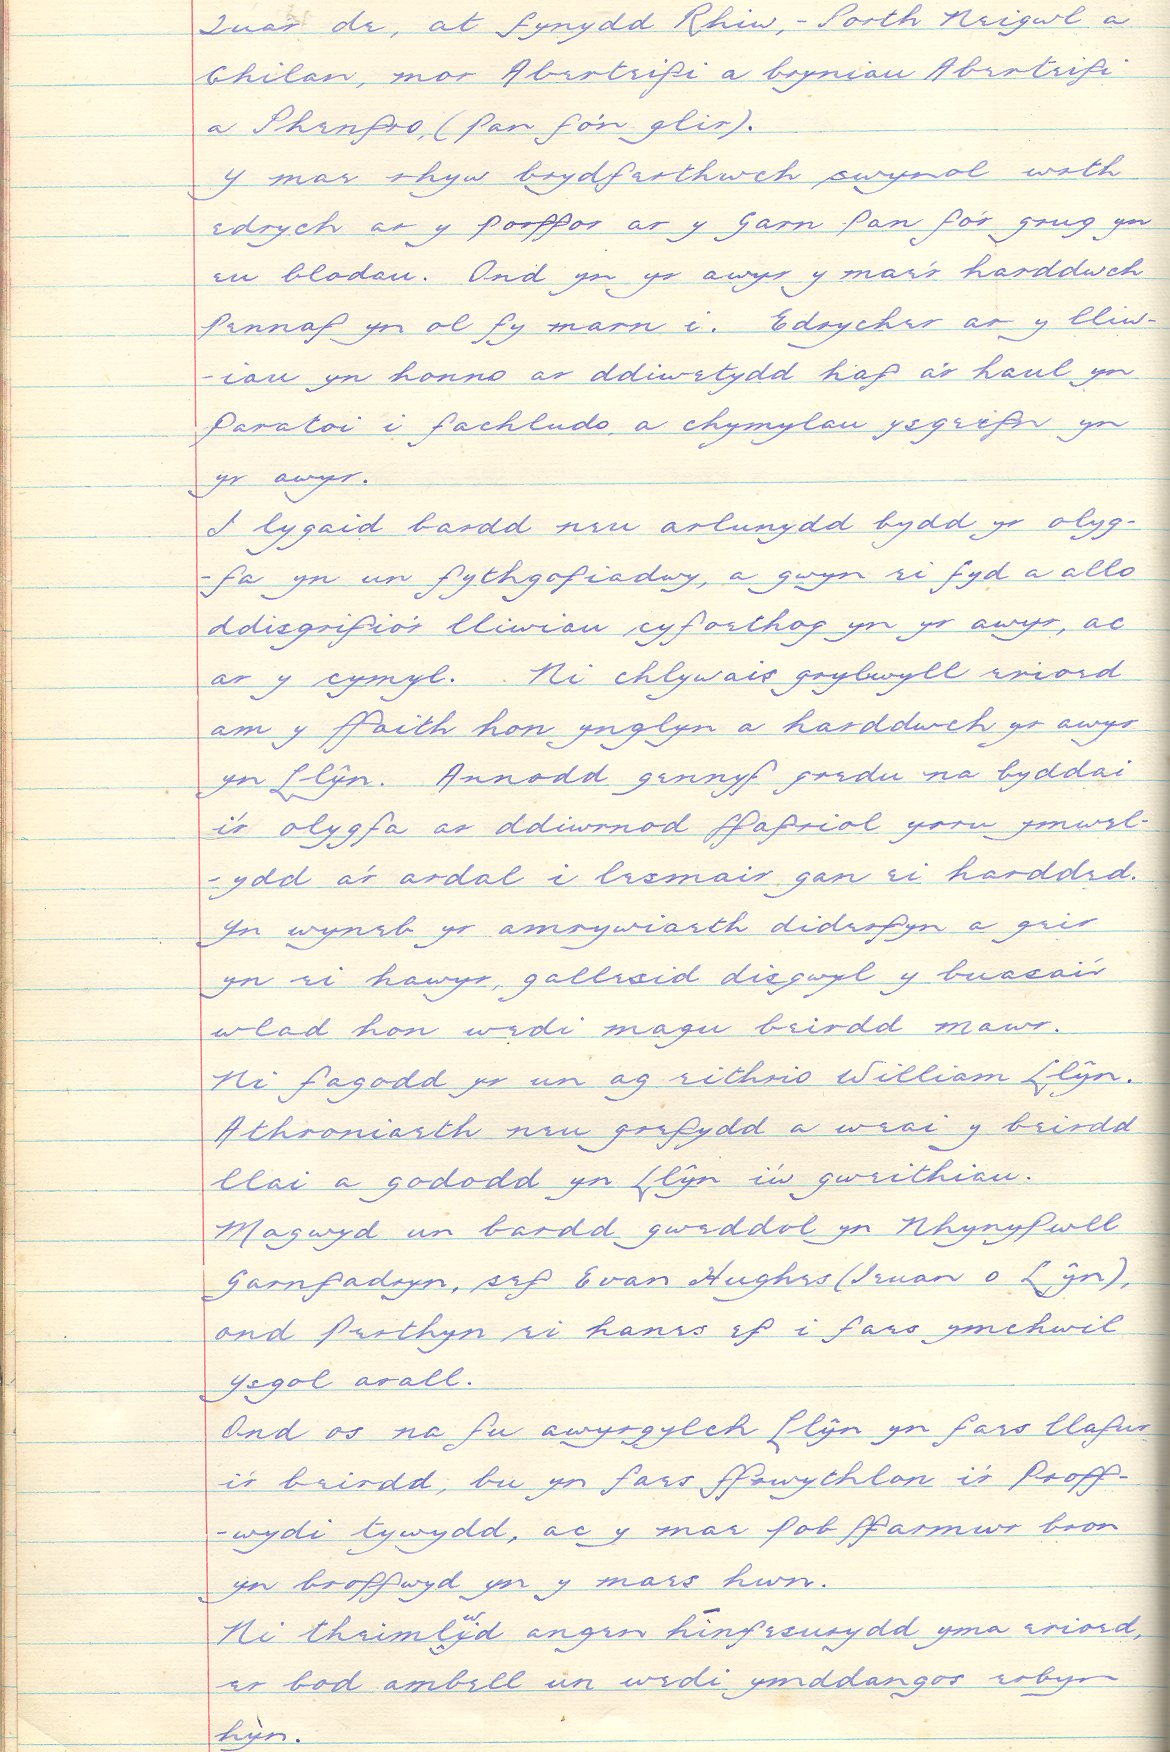 Tuar de, at fynydd Rhiw, - Porth Neigwl a
Chilan, mor Aberteifi a bryniau Aberteifi
a Phenfro, (pan fo'n glir).
Y mae rhyw brydferthwch swynol wrth
edrych ar y porffor ar y Garn pan fo'r grug yn
eu blodau. Ond yn yr awyr y mae'r harddwch
pennaf yn ol fy marn i. Edrycher ar y lliw-
-iau yn honno ar ddiwetydd haf a'r haul yn
paratoi i fachludo a chymylau ysgeifn yn
yr awyr.
I lygaid bardd neu arlunydd bydd yr olyg-
-fa yn un fythgofiadwy, a gwyn ei fyd a allo
ddisgrifio'r lliwiau cyfoethog yn yr awyr, ac
ar y cymyl. Ni chlywais grybwyll erioed
am y ffaith hon ynglyn a harddwch yr awyr
yn Llŷn. Annodd gennyf gredu na byddai
i'r olygfa ar ddiwrnod ffafriol yrru ymwel-
-ydd a'r ardal i lesmair gan ei hardded.
Yn wyneb yr amrywiaeth diderfyn a geir
yn ei hawyr, gallesid disgwyl y buasai'r
wlad hon wedi magu beirdd mawr.
Ni fagodd yr un ag eithrio William Llŷn.
Athroniaeth neu grefydd a weai y beirdd
llai a gododd yn Llŷn i'w gweithiau.
Magwyd un bardd gweddol yn Nhynypwll
Garnfadryn, sef Evan Hughes (Ieuan o Lŷn),
ond perthyn ei hanes ef i faes ymchwil
ysgol arall.
Ond os na fu awyrgylch Llŷn yn faes llafur
i'r beirdd, bu yn faes ffrwythlon i'r proff-
-wydi tywydd, ac y mae pob ffarmwr bron
yn broffwyd yn y maes hwn.
Ni theimlwyd angen hinfesurydd yma erioed,
er bod ambell un wedi ymddangos erbyn
hyn.